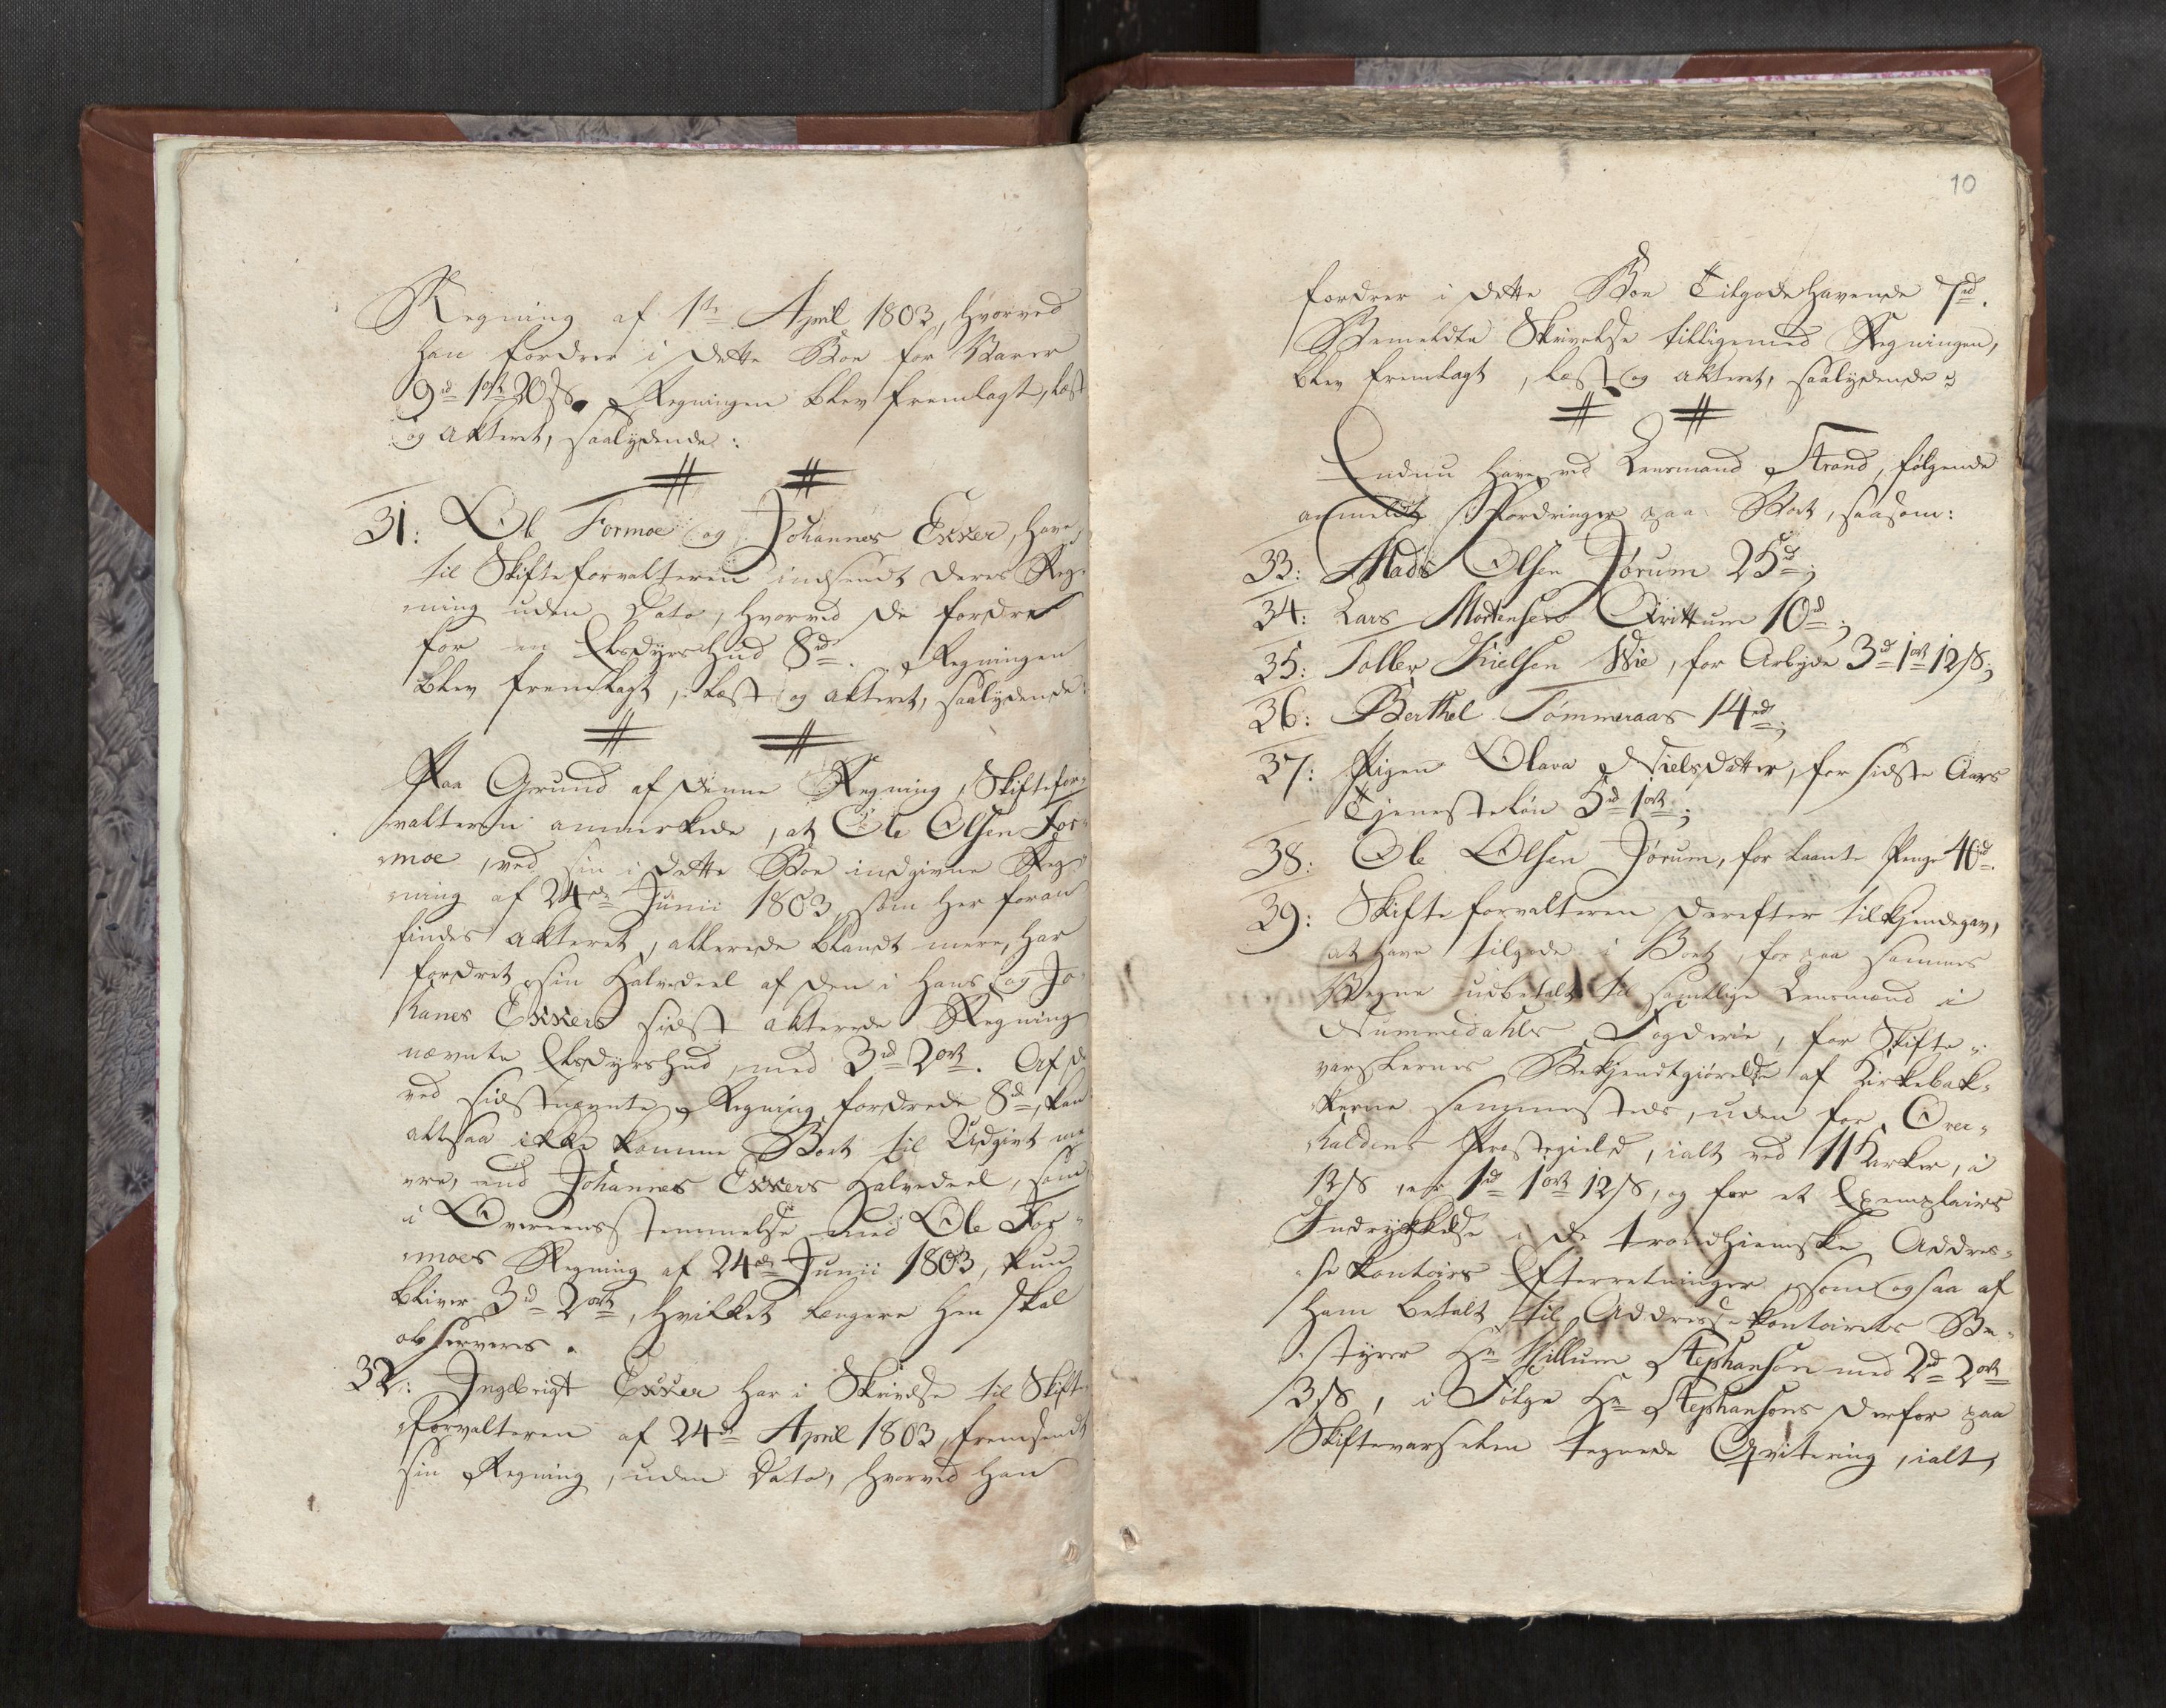 Regning af 1ste April 1803, hvorved
han fordrer i dette Boe for Varer
9rd 1ort 20 s. Regningen blev fremlagt, læst
og akteret, saalydende:
# #
31: Ole Formoe og Johannes Exxer, have
til Skifteforvalteren indsendt deres Reg-
ning uden Dato, hvorved de fordrer
for en Elsdyrshud 8rd. Regningen
blev fremlagt, læst og akteret, saalydende:
# #
Paa Grund af denne Regning, Skiftefor-
valteren anmerkede, at Ole Olsen For-
moe, ved sin i dette Boe indgivne Reg-
ning af 24de Junii 1803, som her foran
findes akteret, allerede blandt mere, har
fordret sin Halvedeel af den i hans og Jo-
hanes Exxers sidst akterede Regning
nævnte Elsdyrshud, med 3rd 2ort. Af de
ved sidstnævnte Regning fordrede 8rd, kan
altsaa ikke komme Boet til Udgivt me-
ere, end Johannes Exxers Halvedeel, som
i Overeensstemmelse med Ole For-
moes Regning af 24de Junii 1803, kun
bliver 3rd 2ort, hvilket længere hen skal
observeres.
32: Ingebrigt Exxer har i Skrivelse til Skifte-
forvalteren af 24de April 1803, fremsendt
sin Regning, uden Dato, hvorved han
10
fordrer i dette Boe Tilgodehavende 7rd.
Bemeldte Skrivelse tilligemed Regningen,
blev fremlagt, læst og akteret, saalydende:
# #
Endnu have ved Lensmand Strand, følgende
anmeldt Fordringer paa Boet, saasom:
33: Mads Olsen Jørum 25rd;
34: Lars Mortensen Grittum 10rd;
35: Toller Nielsen Wie, for Arbejde 3rd 1ort 12 s;
36: Berthel Tømmeraas 14rd;
37: Pigen Olava Nielsdatter, for sidste Aars
Tjenesteløn 5rd 1ort;
38: Ole Olsen Jørum, for laante Penge 40rd.
39: Skifteforvalteren derefter tilkjendegav,
at have tilgode i Boet, for paa sammes
Vegne udbetalt til samtlige Lensmænd i
Nummedahls Fogderie, for Skifte-
varslernes Bekjendtgiørelse af Kirkebak-
kerne sammesteds, uden for Over-
haldens Præstegield, ialt ved 11 Kirker, à
12 s, er 1rd 1ort 12 s, og for et Exemplairs
Indrykkelse i de trondhiemske Addres-
se Kontoirs Efterretninger, som ogsaa af
ham betalt til Addresse Kontoirets Be-
styrer Hr Hillum Stephanson med 2rd 2ort
3 s, i Følge Hr Stephansons derfor paa
Skiftevarselen tegnede Qvitering, ialt